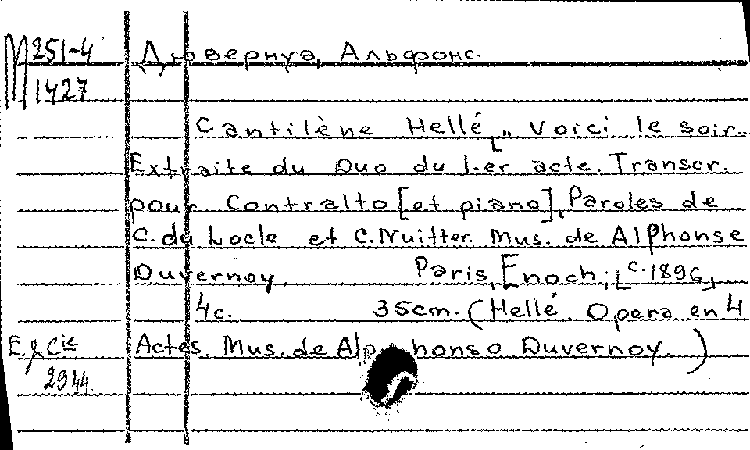 М 251-4 Дювернуа, Альфонс.
1427
Cantilène Hellé, „Voici le soir.
Extraite du Duo du 1-er acte. Transcr.
pour Contralto [et piano], Paroles de
C. du Locle et C. Nuitter. Mus. de Alphonse
Duvernoy. Paris, Enoch, [c. 1896]
4c. 35cm. (Hellé. Opera en 4
E & Cie Actes. Mus. de Alphonso Duvernoy.)
2944